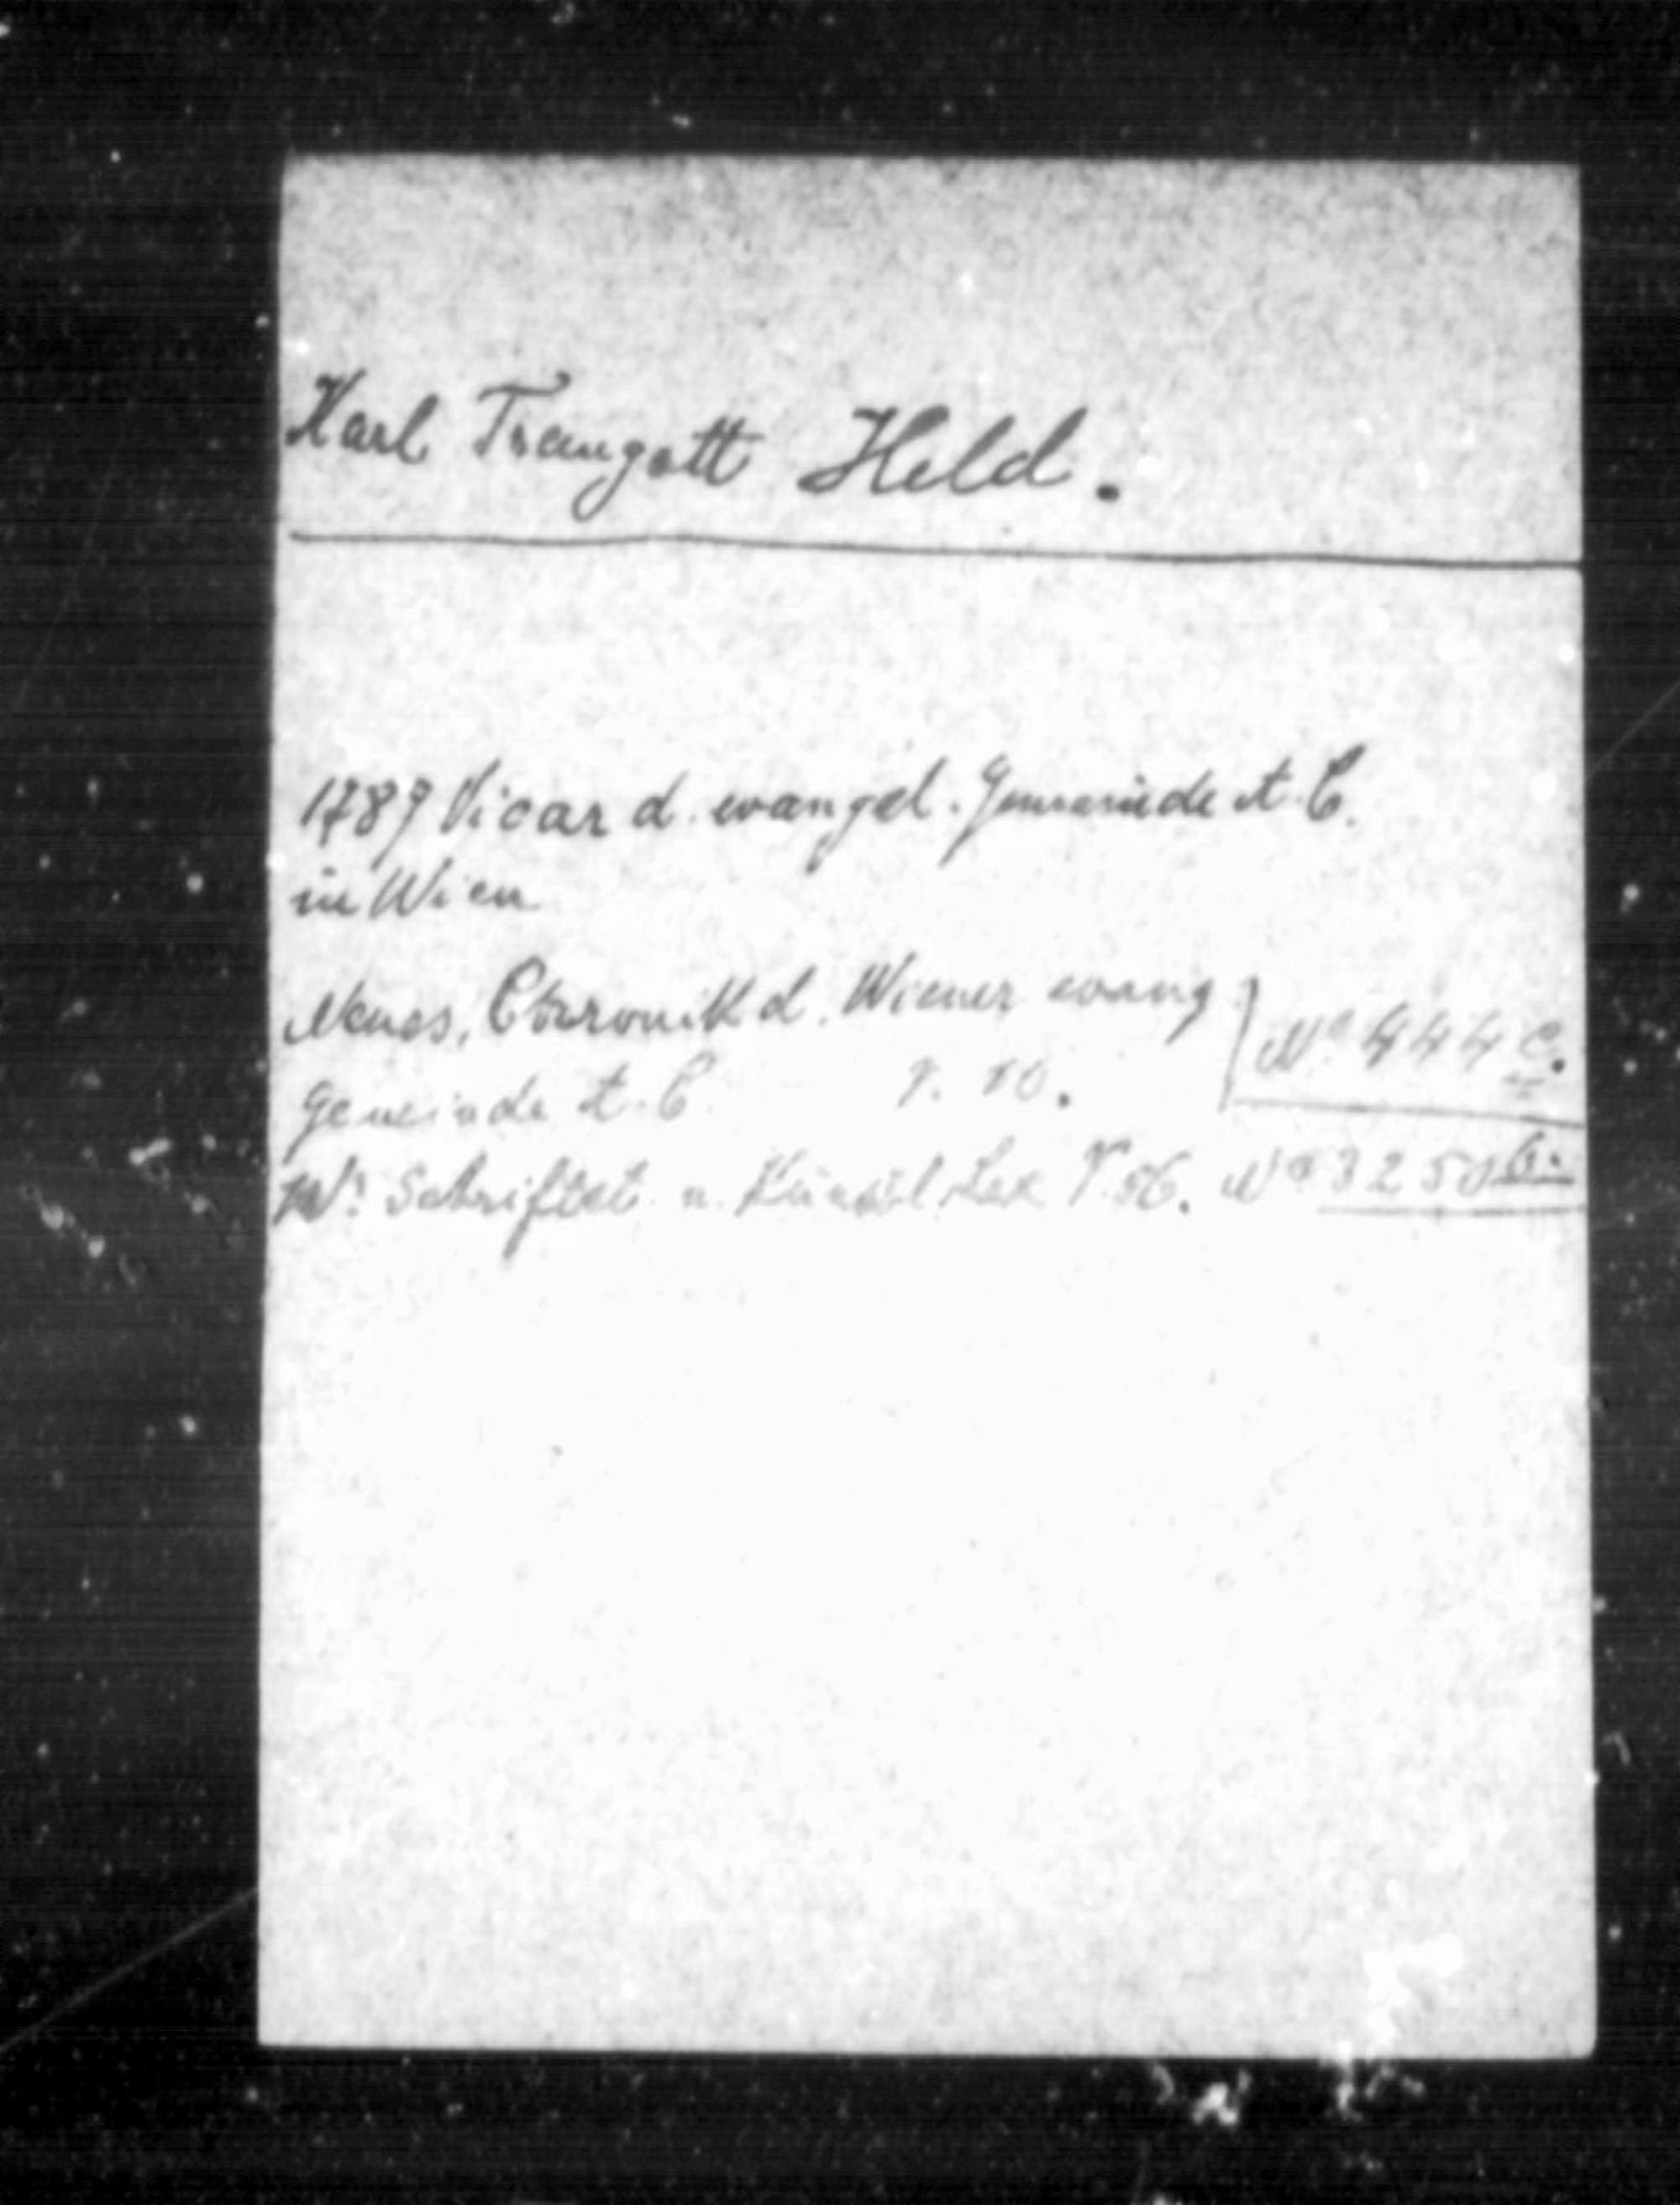 Karl Traugott Held.
1789 Vicar d. evangel. Gemeinde A. C.
in Wien
Chronik d. Wiener evang
Gemeinde A. C. p. 10. No 444 c.
Wr. Schriftst. u. Künstl. Lex No 3250 b.